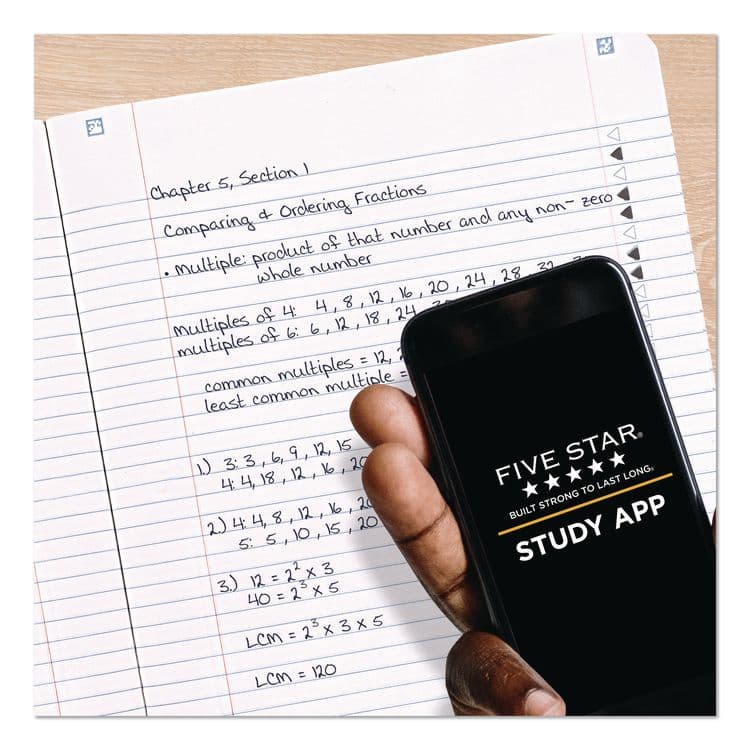 Chapter 5, Section 1
Comparing & Ordering Fractions
• multiple: product of that number and any non-zero
whole number
multiples of 4: 4, 8, 12, 16, 20, 24, 28, 32
multiples of 6: 6, 12, 18, 24
common multiples = 12,
least common multiple =
1) 3: 3, 6, 9, 12, 15
4: 4, 18, 12, 16, 20
2) 4: 4, 8, 12, 16, 20
5: 5, 10, 15, 20
3.) 12 = 2² x 3
40 = 2³ x 5
LCM = 2³ x 3 x 5
LCM = 120
FIVE STAR®
BUILT STRONG TO LAST LONG®
STUDY APP